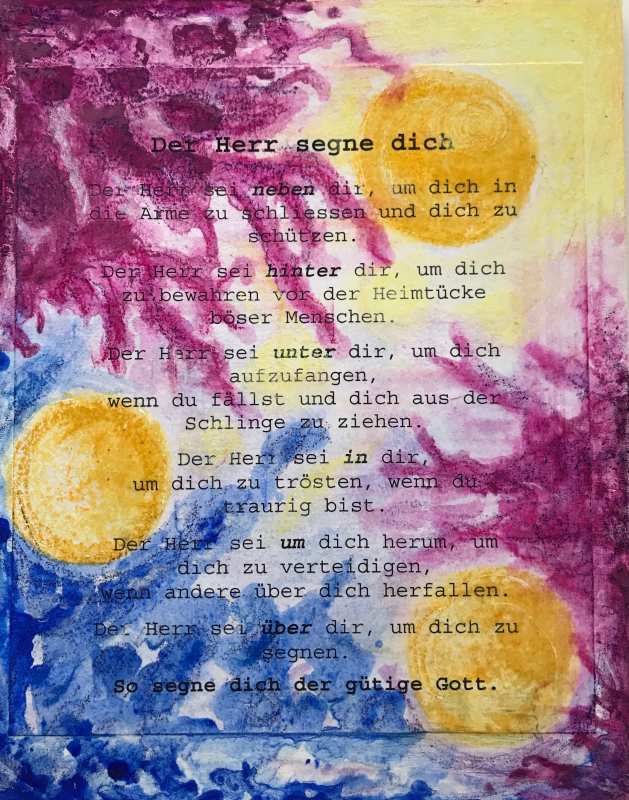 Der Herr segne dich
Der Herr sei neben dir, um dich in
die Arme zu schliessen und dich zu
schützen.
Der Herr sei hinter dir, um dich
zu bewahren vor der Heimtücke
böser Menschen.
Der Herr sei unter dir, um dich
aufzufangen,
wenn du fällst und dich aus der
Schlinge zu ziehen.
Der Herr sei in dir,
um dich zu trösten, wenn du
traurig bist.
Der Herr sei um dich herum, um
dich zu verteidigen,
wenn andere über dich herfallen.
Der Herr sei über dir, um dich zu
segnen.
So segne dich der gütige Gott.